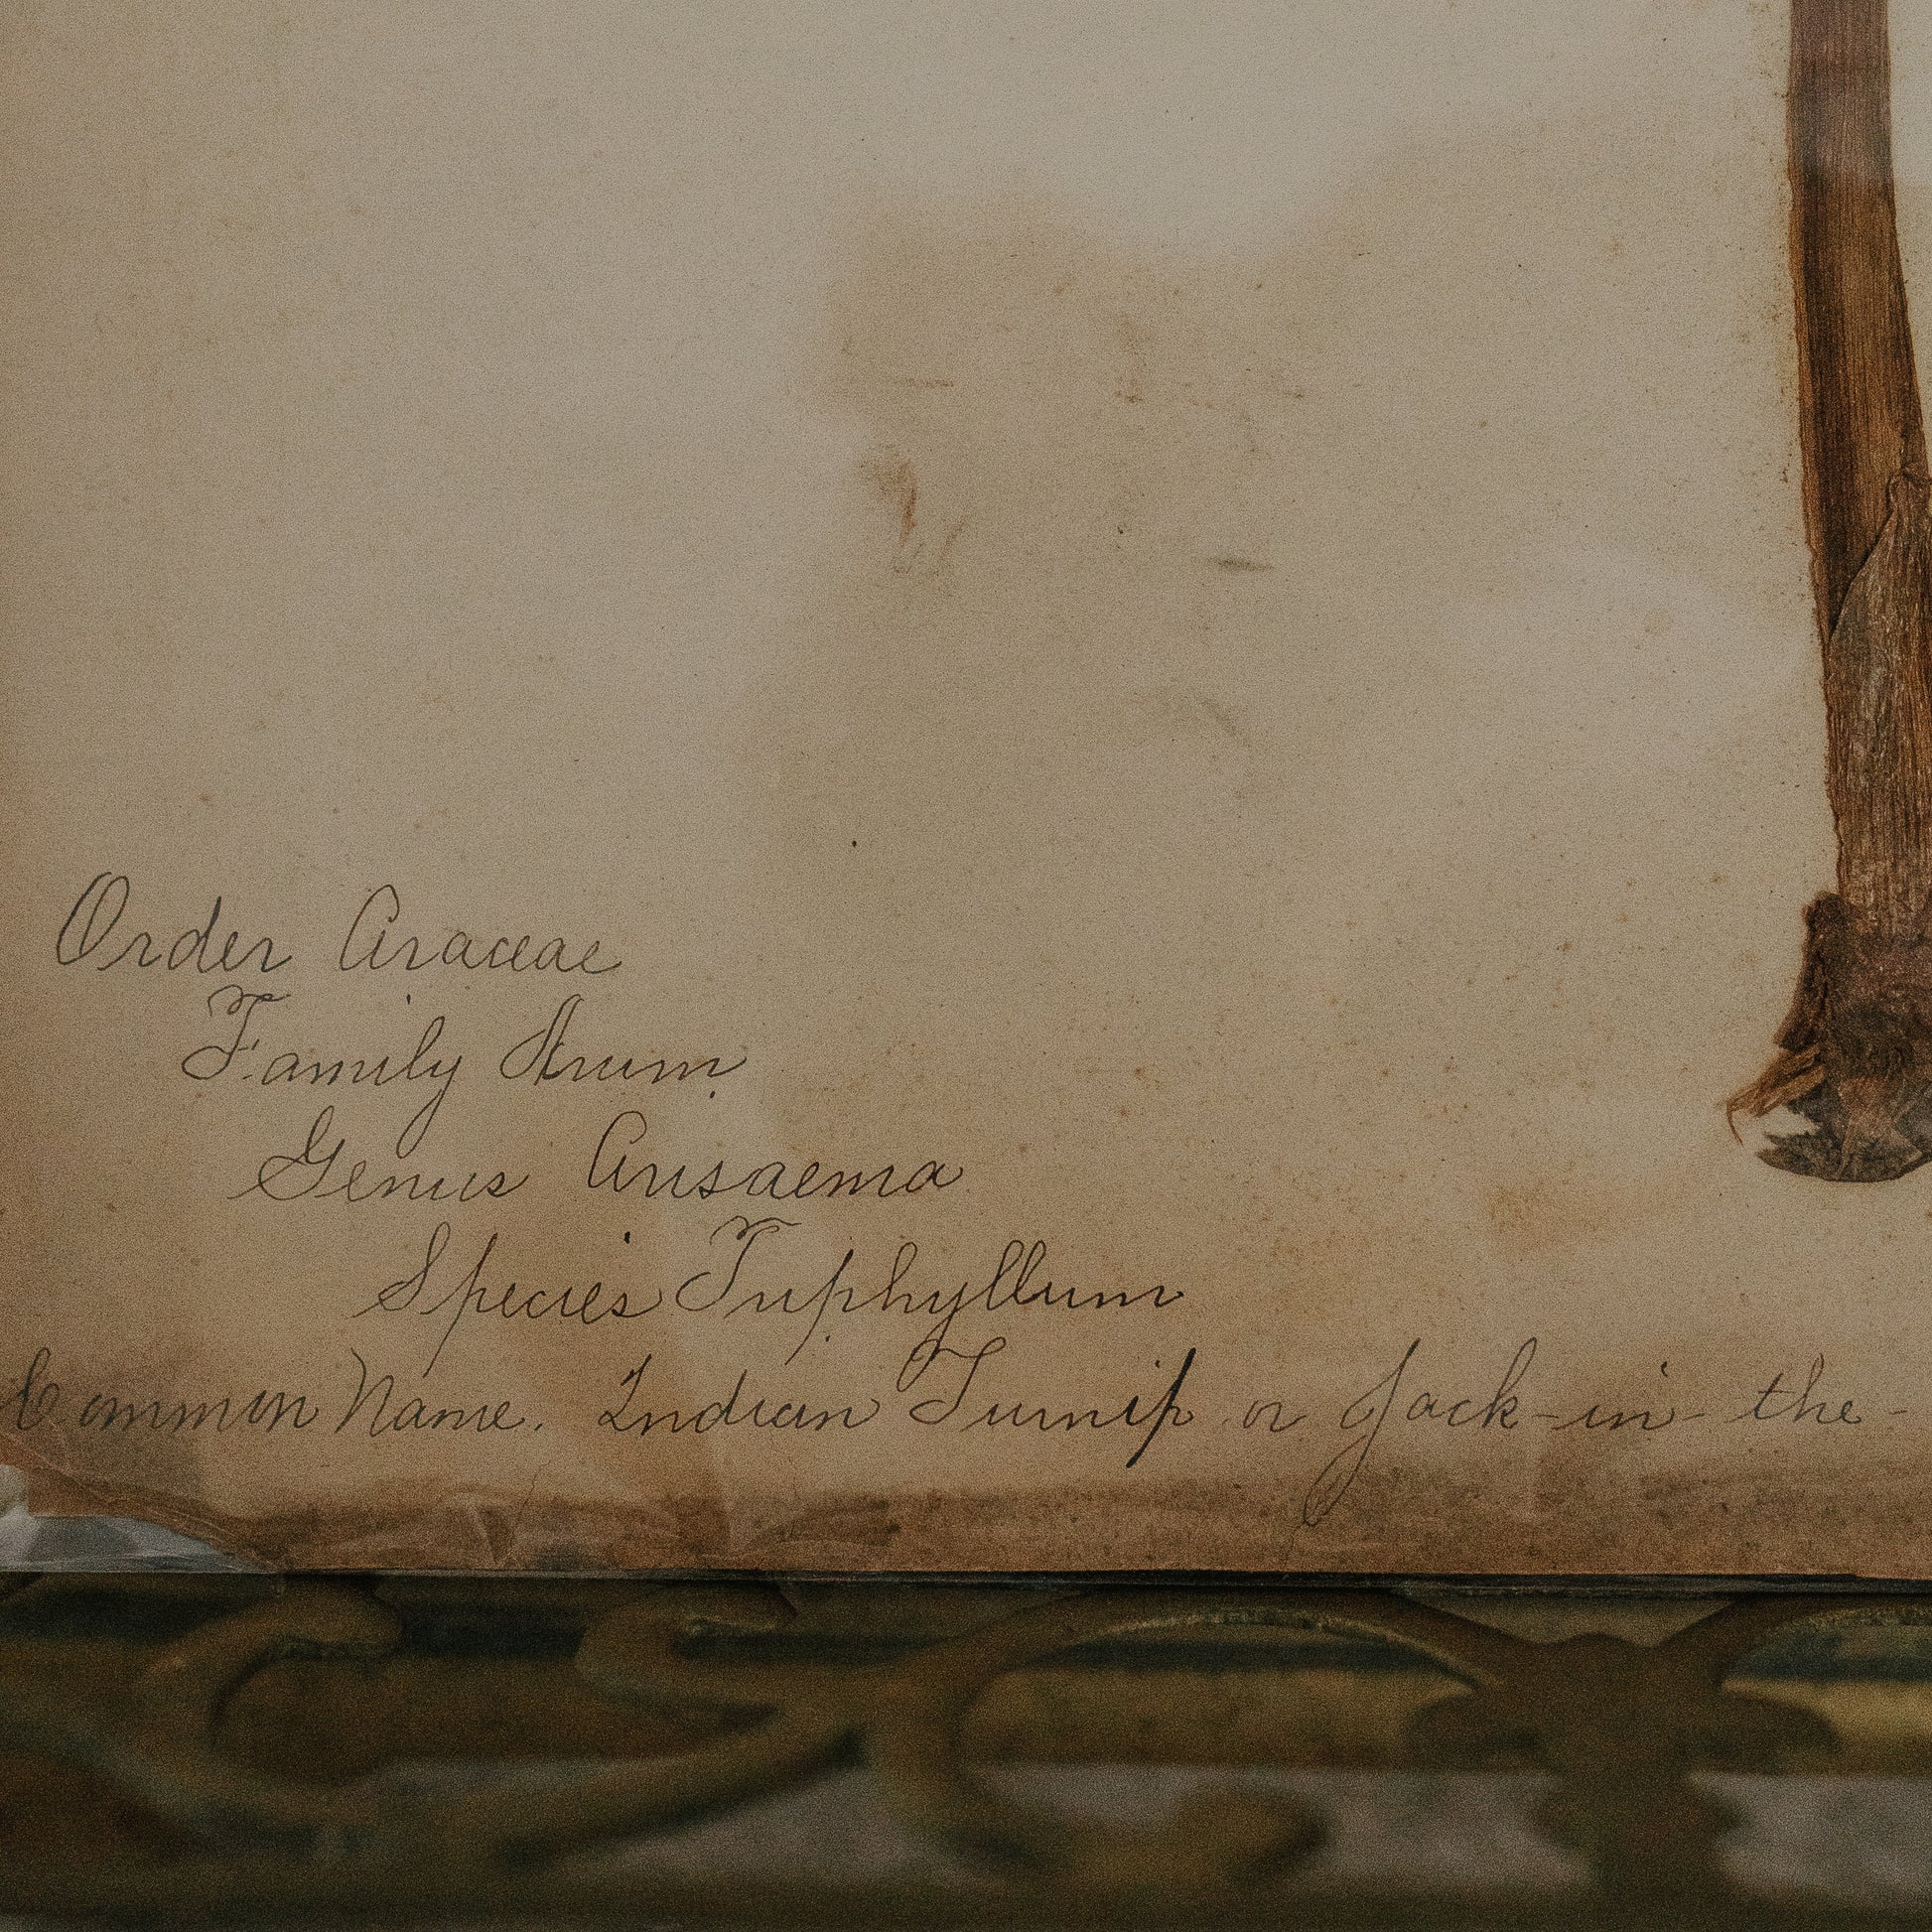 Order Araceae
Family Arum
Genus Arisaema
Species Triphyllum
Common Name. Indian Turnip or Jack-in-the-